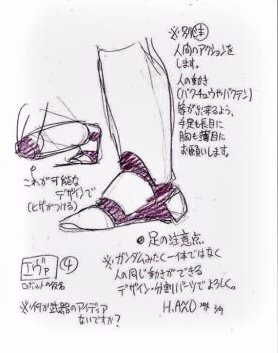 ※別注
人間のアクションを
します。
人の動き
(バクチュウやバクテン)
等が出来るよう、
手足も長目に
胸も薄目に
お願いします。
これが可能な
デザインで
(ヒザがつける)
●足の注意点
※ガンダムみたく一体ではなく
人の同じ動きができる
デザイン・分割パーツでよろしく。
エヴァ ④
ロボットの仮名
※何か武器のアイディア
ないですか?